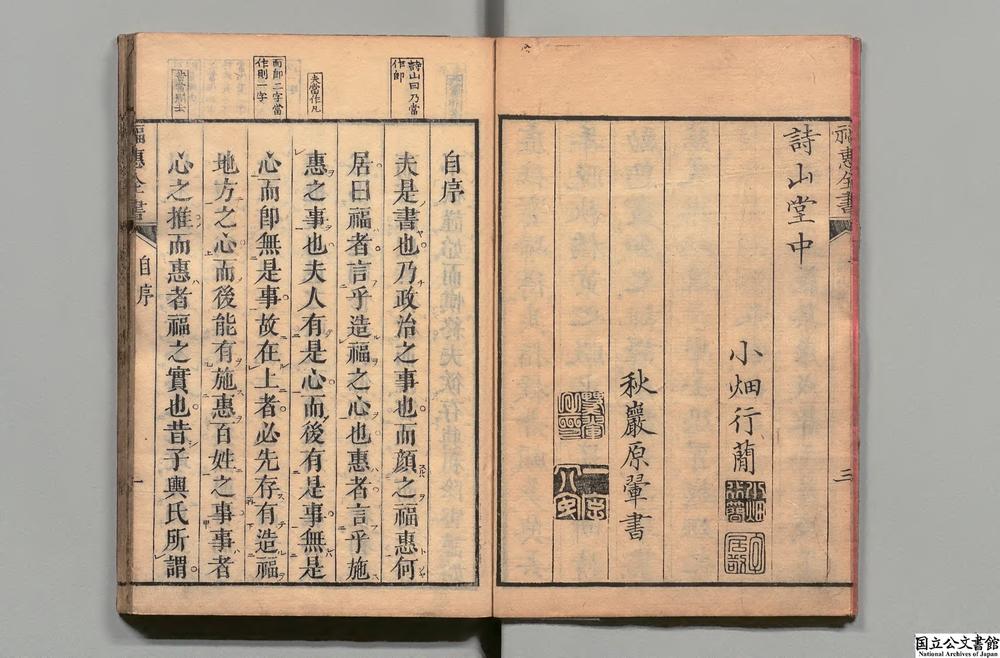 福惠全書
三
詩山堂中
小畑行蕳
秋巖原翬書
詩山曰乃當
作卽
夫當作凡
而卽二字當
作則一字
自序
夫是書也乃政治之事也而顔之福惠何
居曰福者言乎造福之心也惠者言乎施
惠之事也夫人有是心而後有是事無是
心而卽無是事故在上者必先存有造福
地方之心而後能有施惠百姓之事事者
心之推而惠者福之實也昔子輿氏所謂
福惠全書
自序
一
国立公文書館
National Archives of Japan